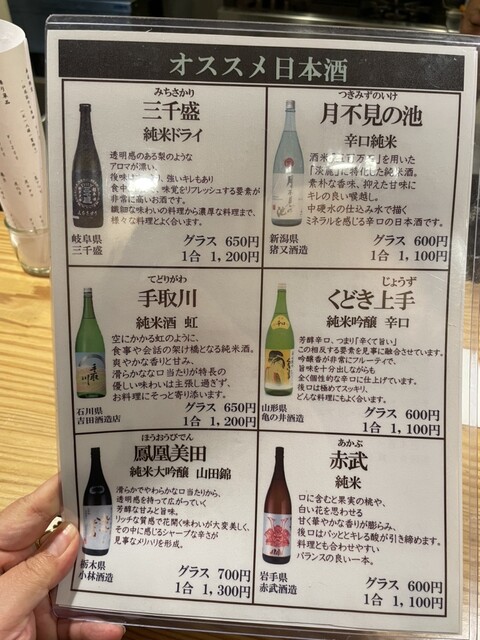 オススメ日本酒
みちさかり
三千盛
純米ドライ
透明感のある梨のような
アロマが漂い、
強いキレもあり
味覚をリフレッシュする要素が
非常に高いお酒です。
繊細な味わいの料理から濃厚な料理まで、
様々な料理とよく合います。
岐阜県
三千盛
グラス 650円
1合 1,200円
つきみずのいけ
月不見の池
辛口純米
を用いた
「淡麗」に特化した純米酒。
素朴な香味、抑えた甘味に
キレの良い喉越し。
中硬水の仕込み水で描く
ミネラルを感じる辛口の日本酒です。
新潟県
猪又酒造
グラス 600円
1合 1,100円
てどりがわ
手取川
純米酒 虹
空にかかる虹のように、
食事や会話の架け橋となる純米酒。
爽やかな香りと甘み、
滑らかな口当たりが特長の
優しい味わいは主張し過ぎず、
お料理にそっと寄り添います。
石川県
吉田酒造店
グラス 650円
1合 1,200円
じょうず
くどき上手
純米吟醸 辛口
芳醇辛口、つまり「辛くて旨い」
この相反する要素を見事に融合させています。
吟醸香が非常にフルーティで、
旨味を十分出しながらも
全く個性的な辛口に仕上げています。
後口は極めてスッキリ、
どんな料理にもよく合います。
山形県
亀の井酒造
グラス 600円
1合 1,100円
ほうおうびでん
鳳凰美田
純米大吟醸 山田錦
滑らかでやわらかな口当たりから、
透明感を持って広がっていく
芳醇な甘みと旨み。
リッチな質感で花開く味わいが大変美しく、
その中に感じるシャープな辛さが
見事なメリハリを形成。
栃木県
小林酒造
グラス 700円
1合 1,300円
あかぶ
赤武
純米
口に含むと果実の桃や、
白い花を思わせる
甘く華やかな香りが膨らみ、
後口はパッとキレる酸が引き締めます。
料理とも合わせやすい
バランスの良い一本。
岩手県
赤武酒造
グラス 600円
1合 1,100円